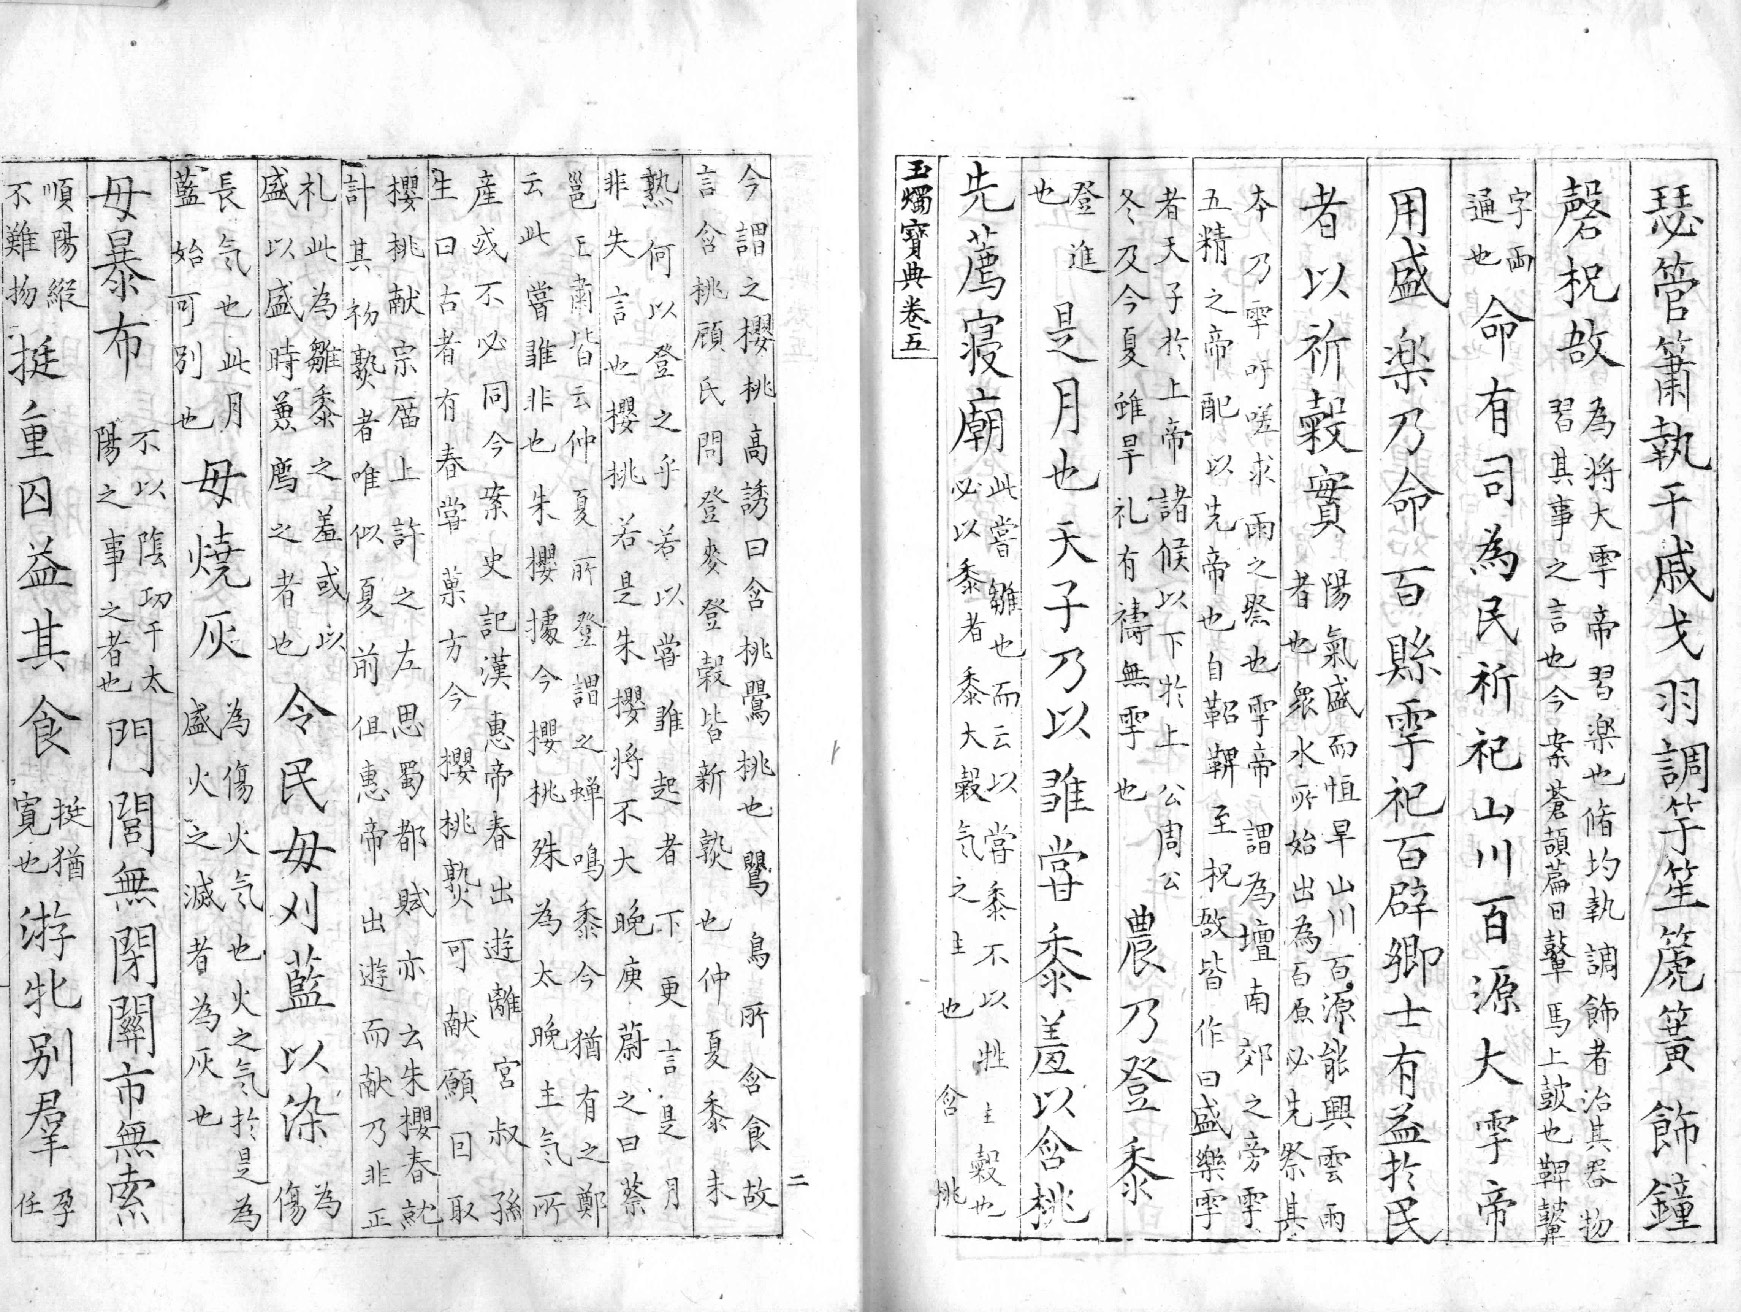 瑟管簫執干戚戈羽調竽笙箎簧飾鐘
磬柷敔為将大雩帝習楽也脩均執調飾者治其吞物
習其事之言也今案蒼頡篇曰鼙馬上鼓也鞞鼙
字両
通也命有司為民祈祀山川百源大雩帝
用盛楽乃命百縣雩祀百辟卿士有益於民
者以祈穀實陽氣盛而恒旱山川百源能興雲雨
者也衆水所始出為百原必先祭其
本乃雩吁嗟求雨之祭也雩帝謂為壇南郊之旁雩
五精之帝配以先帝也自鞀鞞至柷敔皆作曰盛樂雩
者天子於上帝諸候以下於上公周公
冬及今夏雖旱礼有禱無雩也農乃登黍
登進
也是月也天子乃以雖甞黍羞以含桃
先薦寝廟此甞雛也而云以甞黍不以牲主穀也
必以黍者黍大穀気之主也含桃
玉燭寳典卷五
二
今謂之櫻桃高誘曰含桃鸎桃也鸎鳥所含食故
言含桃顧氏問登麥登穀皆新熟也仲夏黍未
熟何以登之乎若以甞雖起者下更言是月
非失言也櫻桃若是朱櫻将不大晩庾蔚之曰蔡
邕王肅皆云仲夏所登謂之蝉鳴黍今猶有之鄭
云此甞雖非也朱櫻據今櫻桃殊為太晩主気所
産或不必同今案史記漢惠帝春出遊離宮叔孫
生曰古者有春甞菓方今櫻桃熟可献願因取
櫻桃献宗庿上許之左思蜀都賦亦云朱櫻春就
計其初熟者唯似夏前但惠帝出遊而献乃非正
礼此為雛黍之羞或以
盛以盛時兼薦之者也令民毋刈藍以染為
傷
長気也此月
藍始可別也毋焼灰為傷火気也火之気於是為
盛火之滅者為灰也
毋暴布不以陰功干太
陽之事之者也門閭無閉關市無索
順陽縦
不難物挺重囚益其食挺猶
寛也游牝別羣孕
任